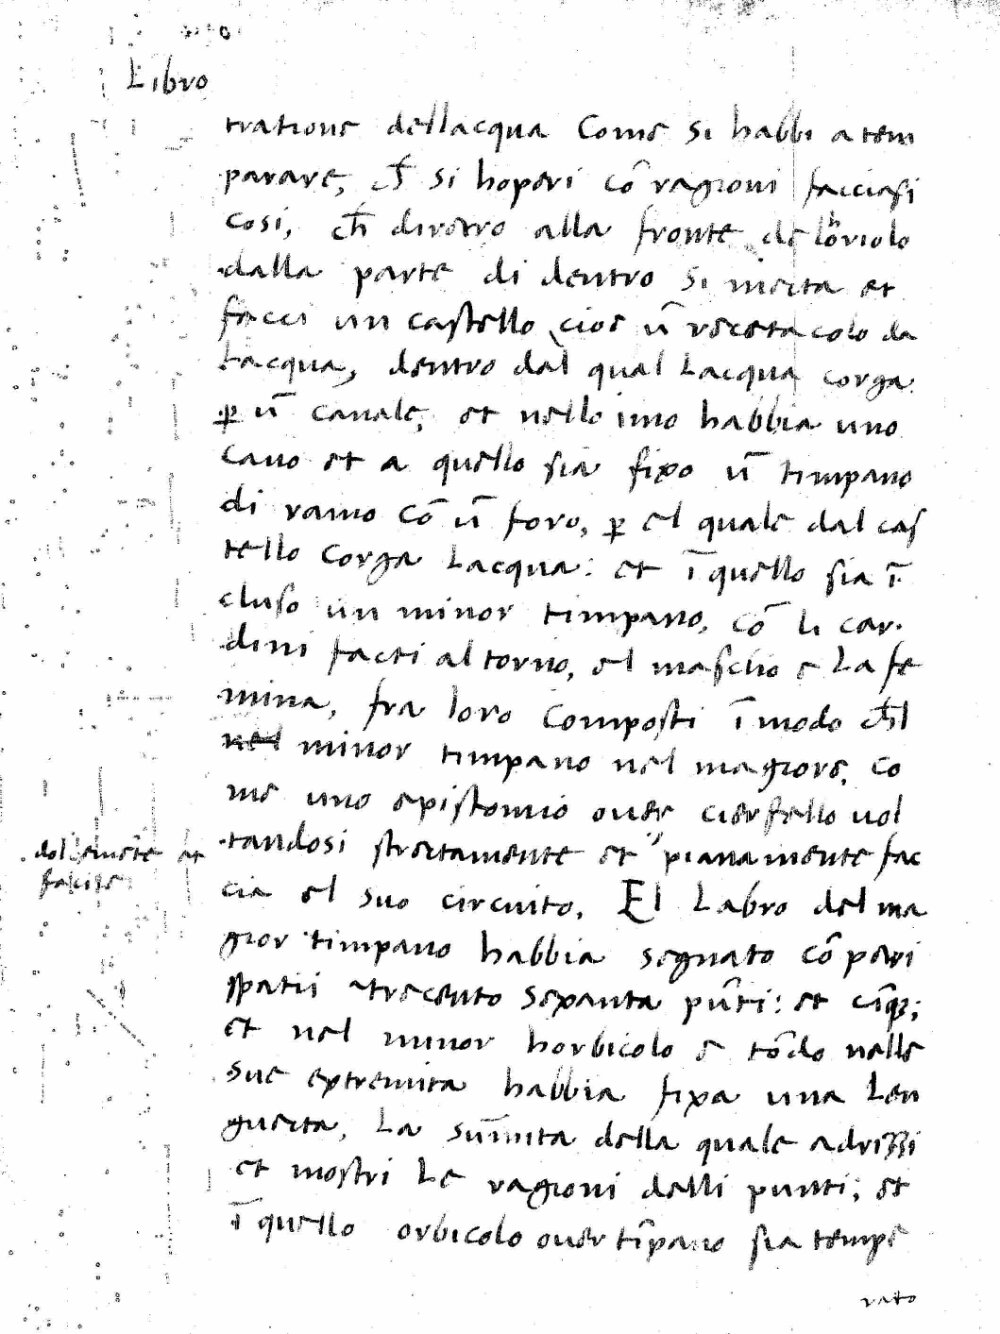 Libro
tratione dellacqua Come si habbi a tem
parare, ch̄ si hoperi cō ragioni facciasi
cosi, ch̄ dirotro alla fronte de lhoriolo
dalla parte di dentro si metta et
facci un castello cioe ū recetacolo da
Lacqua, dentro dal qual Lacqua corga
ꝑ ū canale, et nello imo habbia uno
cavo et a quello sia fixo ū timpano
di ramo cō ū foro, ꝑ el quale dal cas
tello Corga Lacqua: et ī quello sia ī
cluso un minor timpano, cō li car.
dini facti al torno, el maschio e La fe
mina, fra loro Composti ī modo ch̄l
nel minor timpano nel magiore, co
me uno epistomio over cierfello vol
tandosi strectamente et pianamente fac
dolcemēte et
facile
cia el suo circuito. El Labro del ma
gior timpano habbia segnato cō peri
spatii trecento sexanta pūti: et cīqꝫ;
et nel minor horbicolo e tōdo nelle
sue extremita habbia fixa una Len
guetta, La sūmita della quale adrizzi
et mostri Le ragioni delli punti; et
ī quello orbicolo over tīpano sia tempe
rato